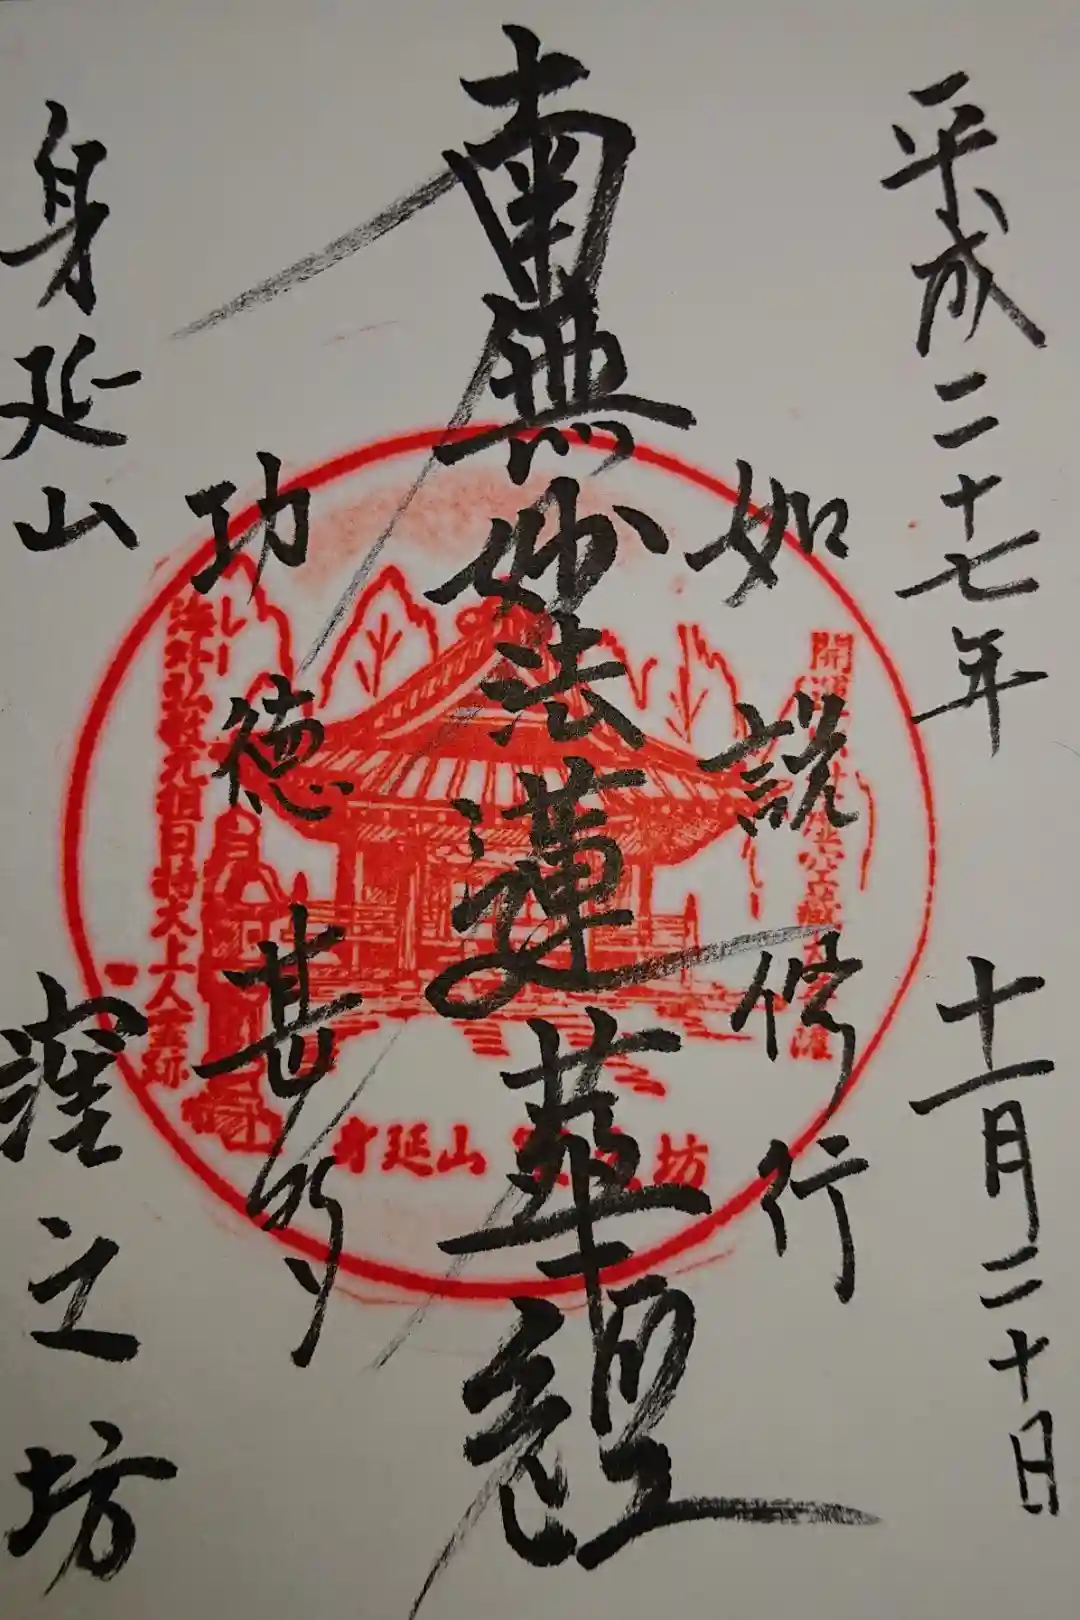 平成二十七年 十一月二十日
如説修行
南無妙法蓮華経
功徳甚多
身延山 窪之坊
海外弘教元祖日持大上人霊跡
身延山 坊